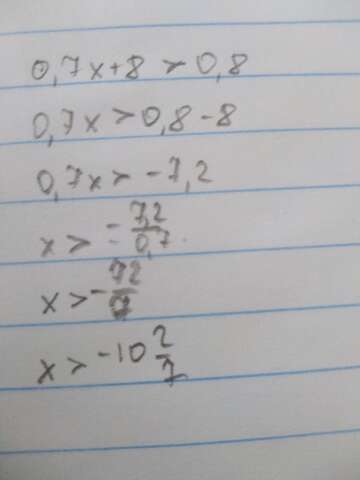 0,7x+8 > 0,8
0,7x > 0,8 - 8
0,7x > -7,2
x > -7,2/0,7
x > -72/7
x > -10 2/7